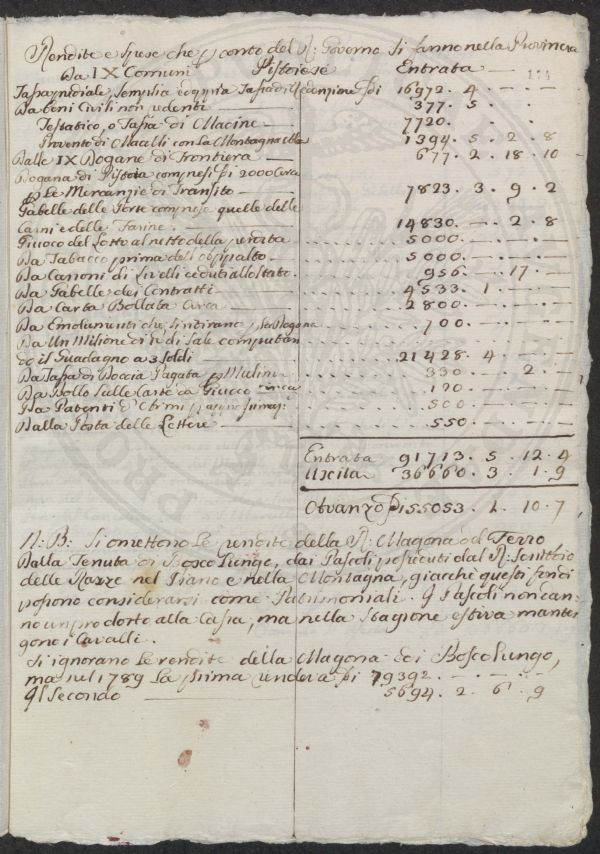 Rendite e spese che p conto del R: Governo si fanno nella Provincia
Da IX Comuni Pistoiese Entrata
Tassa prediale, semplice Tassa di Redenzione 16972. 4. — . —
Da beni Civili non 377. 5.
Testatico, o Tassa di Macine — 7720. — . — . —
Provento di Macelli con La Montagna 1394. 5. 2. 8
Dalle IX Dogane di Frontiera — 677. 2. 18. 10
Dogana di Pistoia comprese 2000 Circa
p Le Mercanzie di Transito — 7823. 3. 9. 2
Gabelle delle Porte comprese quelle delle
Carni e delle Farine. — 14830. — . 2. 8
Giuoco del Lotto al netto della perdita 5000. — . — . —
Da Tabacco prima dell' appalto 5000. — . — . —
Da Canoni di Livelli ceduti allo Stato. 956. — . 17. —
Da Gabelle dei Contratti 4533. 1. — . —
Da Carta Bollata Circa 2800. — . — . —
Da Emolumenti che si ritirano p la Dogana 700. — . — . —
Da Un Milione di di Sale computan
do il Guadagno a 3 soldi 21428. 4. — . —
Da Tassa di Boccia Pagata p Mulini 330. — . 2. —
Da Bollo sulle Carte da Giuoco circa 120. — . — . —
Da Patenti d' 500. — . — . —
Dalla Posta delle Lettere 550. — . — . —
Entrata 91713. 5. 12. 4
Uscita 36660. 3. 1. 9
Avanzo 55053. 1. 10. 7
N: B: Si omettono Le rendite della R: Magona del Ferro
Dalla Tenuta di Bosco Lungo, dai Pascoli posseduti dal R: Scrittoio
delle Razze nel Piano e nella Montagna, giacchè questi fondi
possono considerarsi come Patrimoniali. I Pascoli non can:
no un prodotto alla Cassa, ma nella Stagione estiva mante
gono i Cavalli.
Si ignorano Le rendite della Magona di Boscolungo,
ma nel 1789 La prima rendeva 79392. — . — . —
Il Secondo — 5694. 2. 6. 9